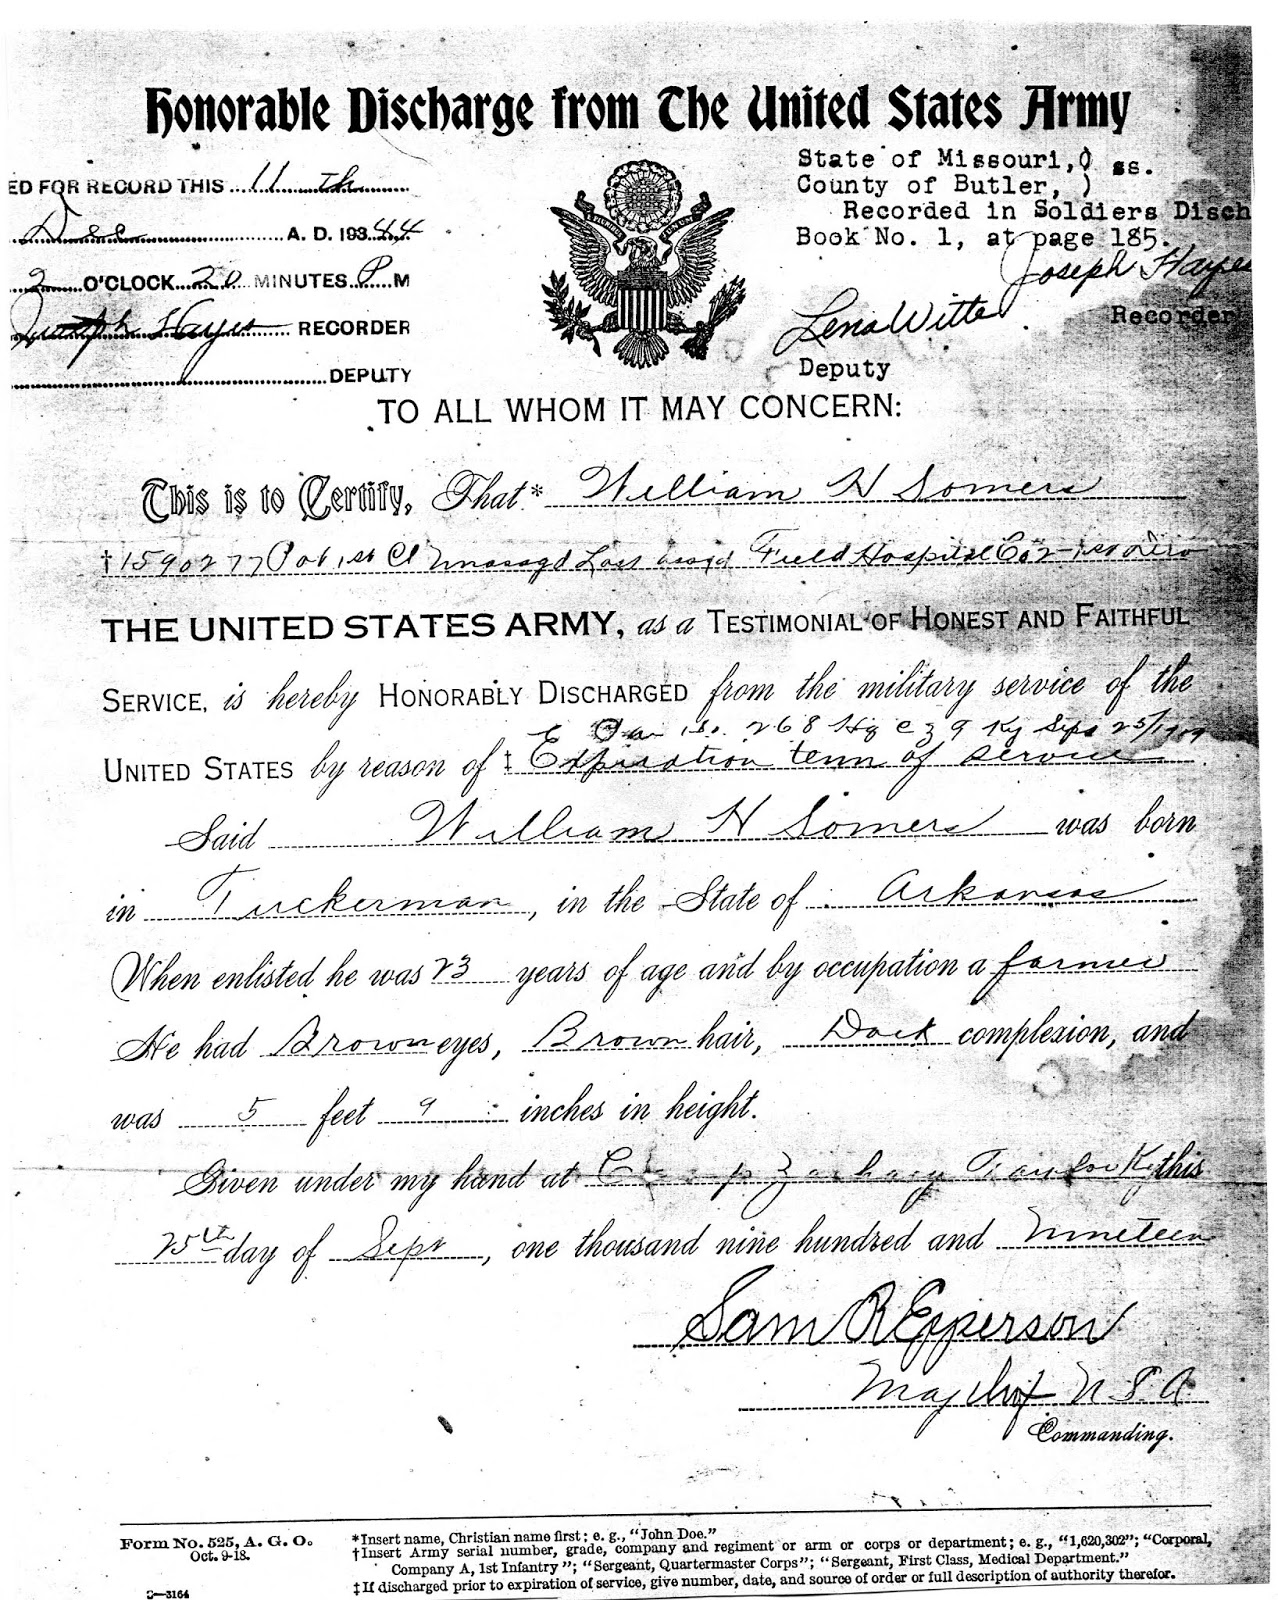 Honorable Discharge from The United States Army
ED FOR RECORD THIS 11 th
Dec A. D. 193 44
2 O'CLOCK 20 MINUTES P. M
Joseph Hayes RECORDER
DEPUTY
State of Missouri,) ss.
County of Butler, )
Recorded in Soldiers Disch
Book No. 1, at page 185.
Joseph Hayes
Recorder
Lena Witte
Deputy
TO ALL WHOM IT MAY CONCERN:
This is to Certify, That* William H Somers
†1590277 1st Cl Unassgd Last assgd Field Hospital Co
THE UNITED STATES ARMY, as a TESTIMONIAL OF HONEST AND FAITHFUL
SERVICE, is hereby HONORABLY DISCHARGED from the military service of the
268 Hq C Z Ky Sept 25/1919
UNITED STATES by reason of ‡ Expiration term of service
Said William H Somers was born
in Tuckerman, in the State of Arkansas
When enlisted he was 23 years of age and by occupation a farmer
He had Brown eyes, Brown hair, Dark complexion, and
was 5 feet 9 inches in height.
Given under my hand at Camp Zachary Taylor Ky this
25th day of Sept, one thousand nine hundred and nineteen
Sam R Epperson
Maj Inf U S A
Commanding.
Form No. 525, A. G. O.
Oct. 9-18.
3—3164
*Insert name, Christian name first; e. g., "John Doe."
†Insert Army serial number, grade, company and regiment or arm or corps or department; e. g., "1,620,302"; "Corporal,
Company A, 1st Infantry"; "Sergeant, Quartermaster Corps"; "Sergeant, First Class, Medical Department."
‡If discharged prior to expiration of service, give number, date, and source of order or full description of authority therefor.